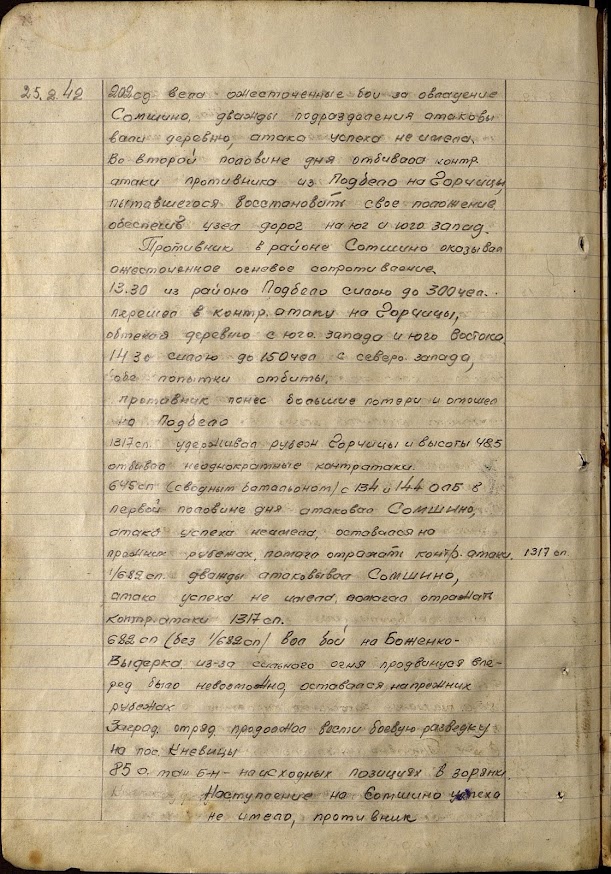 25.2.42 202сд вела ожесточенные бои за овладение
Сомшино, дважды подразделения атаковы
вали деревню, атака успеха не имела.
Во второй половине дня отбивала контр
атаки противника из Подбело на Горчицы,
пытавшегося восстановить свое положение
обеспечив узел дорог на юг и юго запад.
Противник в районе Сомшино оказывал
ожесточенное огневое сопротивление.
13.30 из района Подбело силою до 300 чел.
перешел в контр. атаку на Горчицы,
обтекая деревню с юго. запада и юго Востока.
14 30 силою до 150 чел с северо. запада,
обе попытки отбиты.
противник понес большие потери и отошел
на Подбело
1317 сп. удерживал рубеж Горчицы и высоты 48,5
отбивал неоднократные контратаки.
645 сп (сводным батальоном) с 134 и 144 ОЛБ в
первой половине дня атаковал Сомшино,
атака успеха неимела, оставался на
прежних рубежах, помога отражать контр. атаки. 1317 сп.
1/682 сп. дважды атаковывал Сомшино,
атака успеха не имела, помогал отражать
контр. атаки 1317 сп.
682 сп (без 1/682 сп) вел бой на Боженко-
Выдерка из-за сильного огня продвинуся впе-
ред было невозможно, оставался на прежних
рубежах
Заград. отряд продолжал вести боевую разведку
на пос. Кневицы
85 о. тан б-н - на исходных позициях в
Наступление на Сомшино успеха
не имело, противник